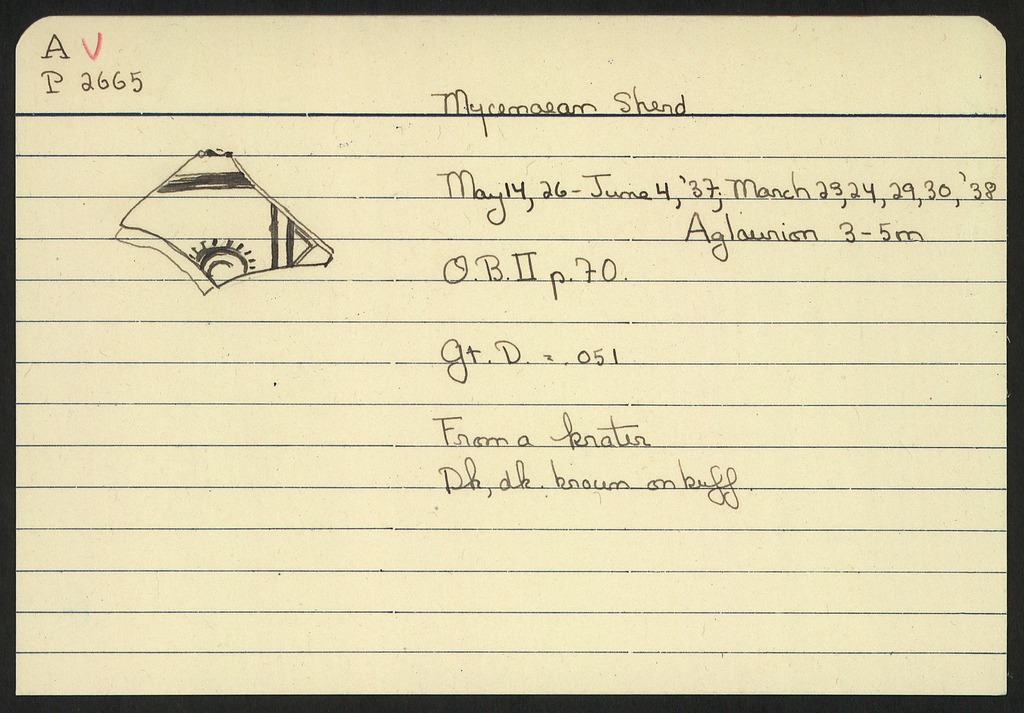 A V
P 2665
Mycenaean Sherd
May 14, 26 - June 4, '37; March 23, 24, 29, 30, '38
Aglaurion 3-5m
O.B. II p. 70.
Gt. D. = .051
From a krater
Dk, dk. brown on buff.